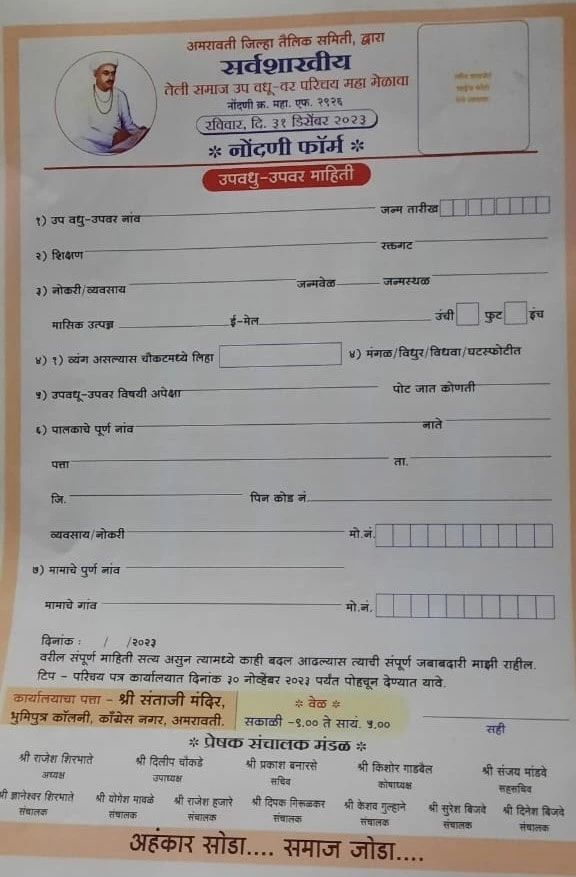 अमरावती जिल्हा तैलिक समिती, द्वारा
सर्वशाखीय
तेली समाज उप वधू-वर परिचय महा मेळावा
नोंदणी क्र. महा. एफ. २९२६
रविवार, दि. ३१ डिसेंबर २०२३
* नोंदणी फॉर्म *
उपवधु-उपवर माहिती
१) उप वधु-उपवर नांव जन्म तारीख
२) शिक्षण रक्तगट
३) नोकरी/व्यवसाय जन्मवेळ जन्मस्थळ
मासिक उत्पन्न ई-मेल उंची फुट इंच
४) १) व्यंग असल्यास चौकटमध्ये लिहा ४) मंगळ/विधुर/विधवा/घटस्फोटीत
५) उपवधू-उपवर विषयी अपेक्षा पोट जात कोणती
६) पालकाचे पूर्ण नांव नाते
पत्ता ता.
जि. पिन कोड नं.
व्यवसाय/नोकरी मो.नं.
७) मामाचे पुर्ण नांव
मामाचे गांव मो.नं.
दिनांक : / /२०२३
वरील संपूर्ण माहिती सत्य असुन त्यामध्ये काही बदल आढल्यास त्याची संपूर्ण जबाबदारी माझी राहील.
टिप - परिचय पत्र कार्यालयात दिनांक ३० नोव्हेंबर २०२३ पर्यंत पोहचून देण्यात यावे.
कार्यालयाचा पत्ता - श्री संताजी मंदिर,
भुमिपुत्र कॉलनी, काँग्रेस नगर, अमरावती.
* वेळ *
सकाळी -९.०० ते सायं. ५.००
सही
* प्रेषक संचालक मंडळ *
श्री राजेश शिरभाते श्री दिलीप चौकडे श्री प्रकाश बनारसे श्री किशोर गाडबैल श्री संजय मांडवे
अध्यक्ष उपाध्यक्ष सचिव कोषाध्यक्ष सहसचिव
श्री ज्ञानेश्वर शिरभाते श्री योगेश मावळे श्री राजेश हजारे श्री दिपक गिरूळकर श्री केशव गुल्हाने श्री सुरेश बिजवे श्री दिनेश बिजवे
संचालक संचालक संचालक संचालक संचालक संचालक संचालक
अहंकार सोडा.... समाज जोडा....